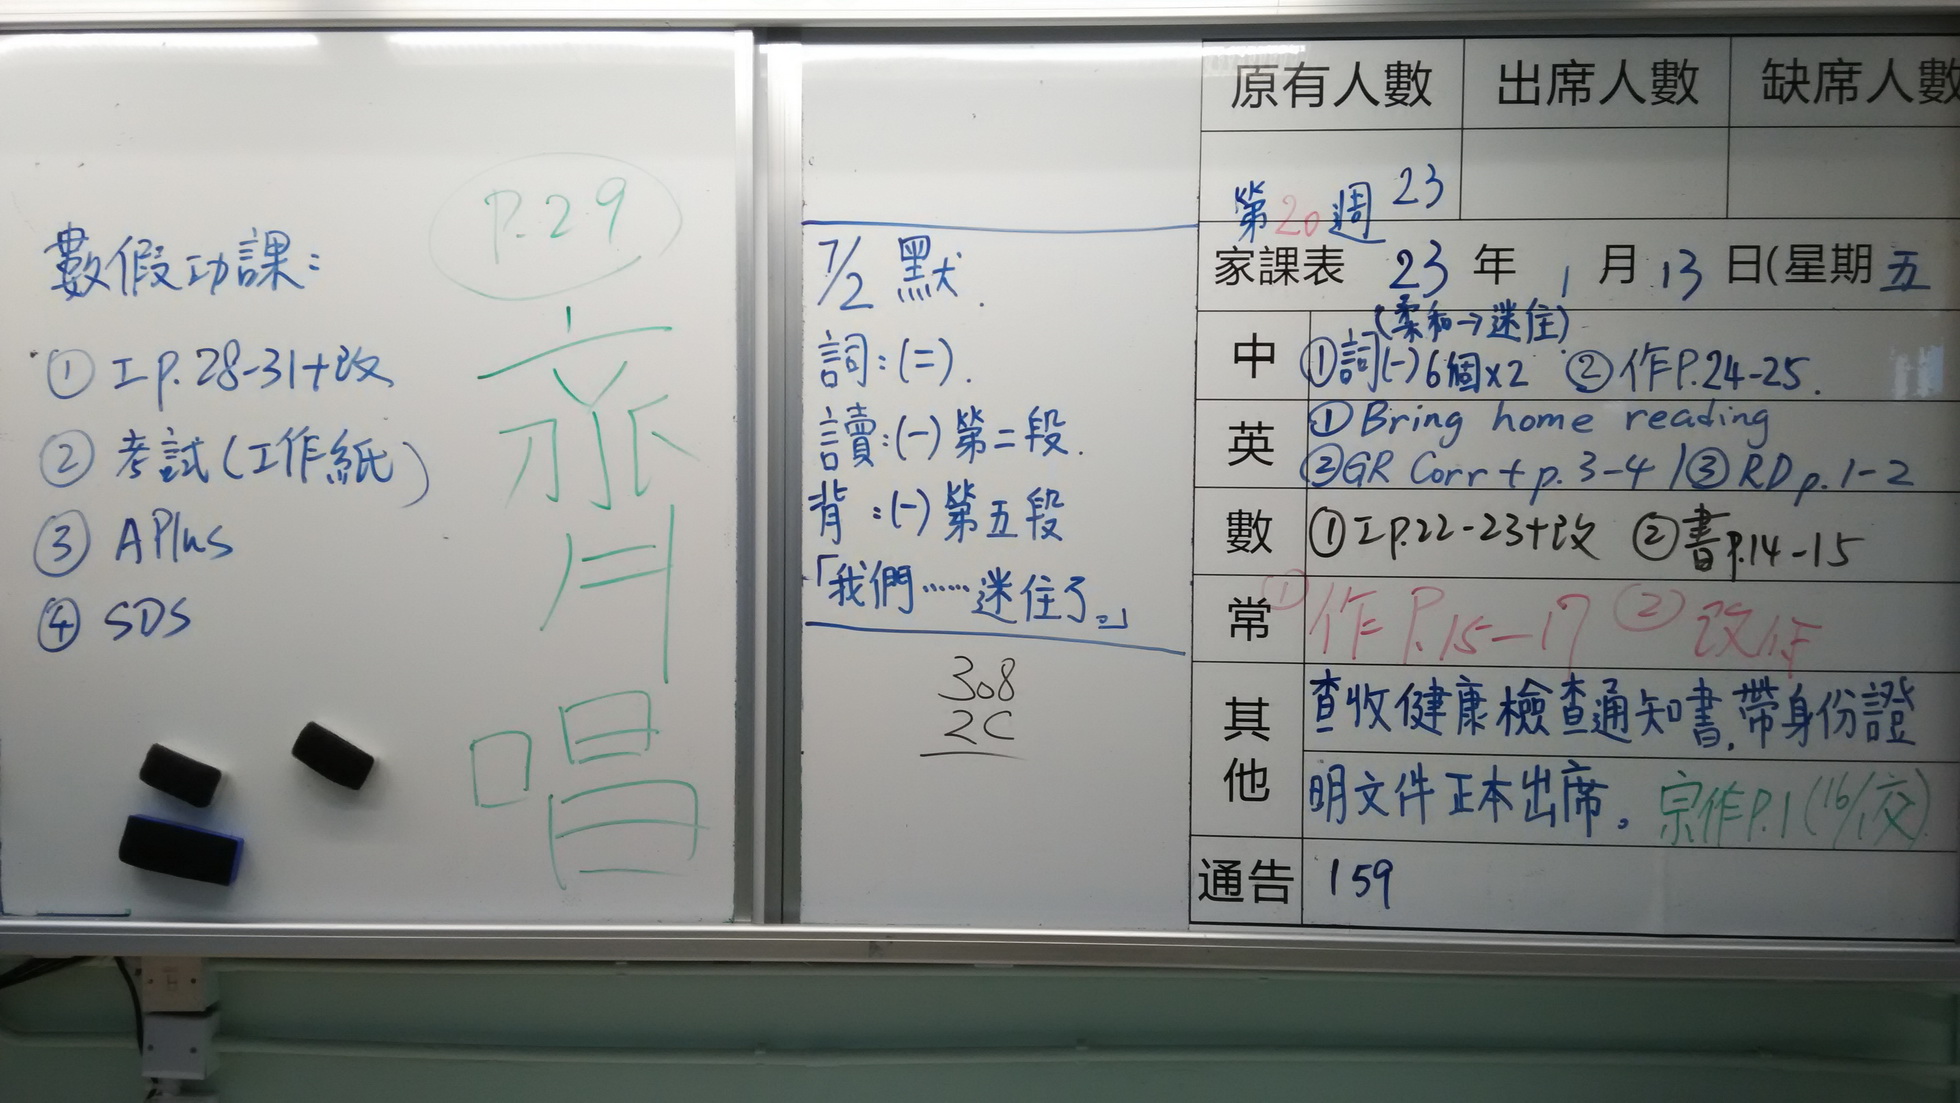 數假功課：
① 工P.28-31+改
② 考試(工作紙)
③ APlus
④ SDS
P.29
齊
唱
7/2 默.
詞：(二).
讀：(一)第二段.
背：(一)第五段
「我們……迷住了。」
308
2C
原有人數 出席人數 缺席人數
23
第20週
家課表 23 年 1 月 13 日(星期五
(柔和→迷住)
中 ①詞(一)6個x2 ②作P.24-25.
英 ①Bring home reading
②GR Corr + p.3-4 / ③RD p.1-2
數 ①工P.22-23+改 ②書P.14-15
常 ①作P.15-17 ②改作
其他 查收健康檢查通知書,帶身份證
明文件正本出席。宗作P.1(16/1交)
通告 159